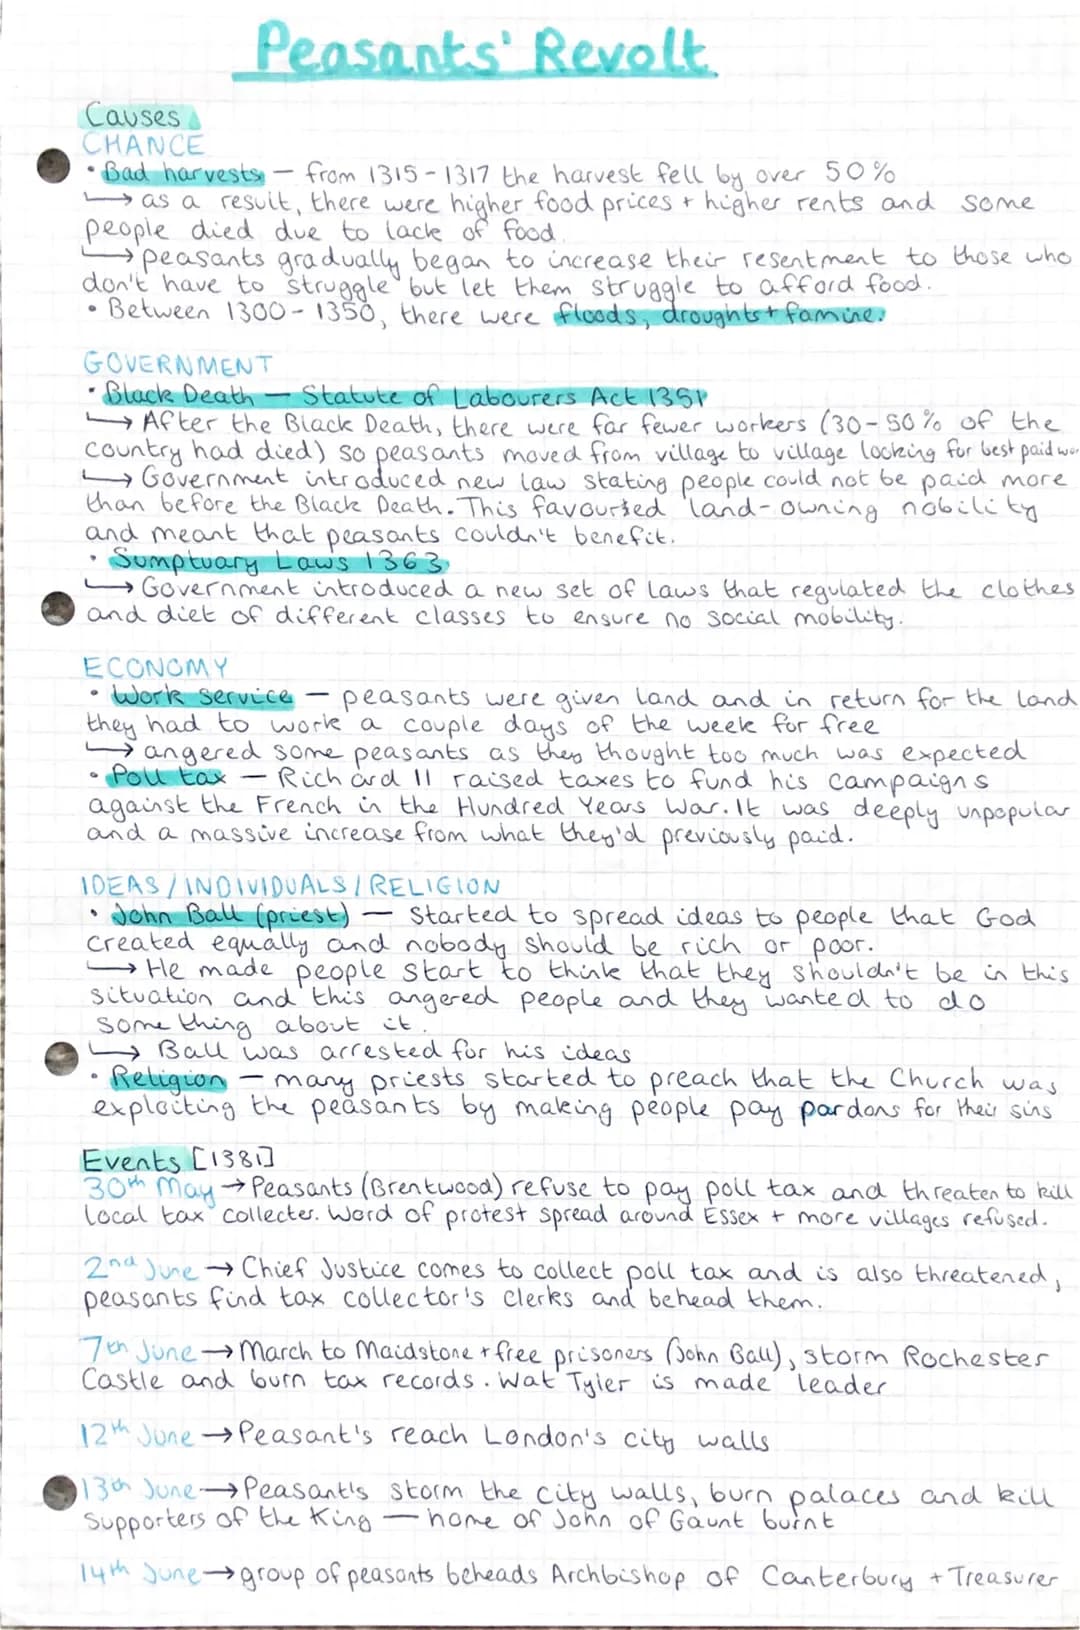 Peasants' Revolt
Causes
CHANCE
• Bad harvests — from 1315-1317 the harvest fell by over 50%
↳ as a result, there were higher food prices + higher rents and some
people died due to lack of food.
↳ peasants gradually began to increase their resentment to those who
don't have to struggle but let them struggle to afford food.
• Between 1300-1350, there were floods, droughts + famine.
GOVERNMENT
• Black Death — Statute of Labourers Act 1351
↳ After the Black Death, there were far fewer workers (30-50% of the
country had died) so peasants moved from village to village looking for best paid
↳ Government introduced new law stating people could not be paid more
than before the Black Death. This favoured land-owning nobility
and meant that peasants couldn't benefit.
• Sumptuary Laws 1363
↳ Government introduced a new set of laws that regulated the clothes
and diet of different classes to ensure no social mobility.
ECONOMY
• Work service — peasants were given land and in return for the land
they had to work a couple days of the week for free
↳ angered some peasants as they thought too much was expected
• Poll tax — Richard II raised taxes to fund his campaigns
against the French in the Hundred Years War. It was deeply unpopular
and a massive increase from what they'd previously paid.
IDEAS/INDIVIDUALS/RELIGION
• John Ball (priest) — Started to spread ideas to people that God
created equally and nobody should be rich or poor.
↳ He made people start to think that they shouldn't be in this
situation and this angered people and they wanted to do
something about it.
↳ Ball was arrested for his ideas
• Religion — many priests started to preach that the Church was
exploiting the peasants by making people pay pardons for their sins
Events [1381]
30th May → Peasants (Brentwood) refuse to pay poll tax and threaten to kill
local tax collecter. Word of protest spread around Essex + more villages refused.
2nd June → Chief Justice comes to collect poll tax and is also threatened,
peasants find tax collector's clerks and behead them.
7th June → March to Maidstone + free prisoners (John Ball), storm Rochester
Castle and burn tax records. Wat Tyler is made leader
12th June → Peasant's reach London's city walls
13th June → Peasant's storm the city walls, burn palaces and kill
supporters of the King — home of John of Gaunt burnt
14th June → group of peasants beheads Archbishop of Canterbury + Treasurer